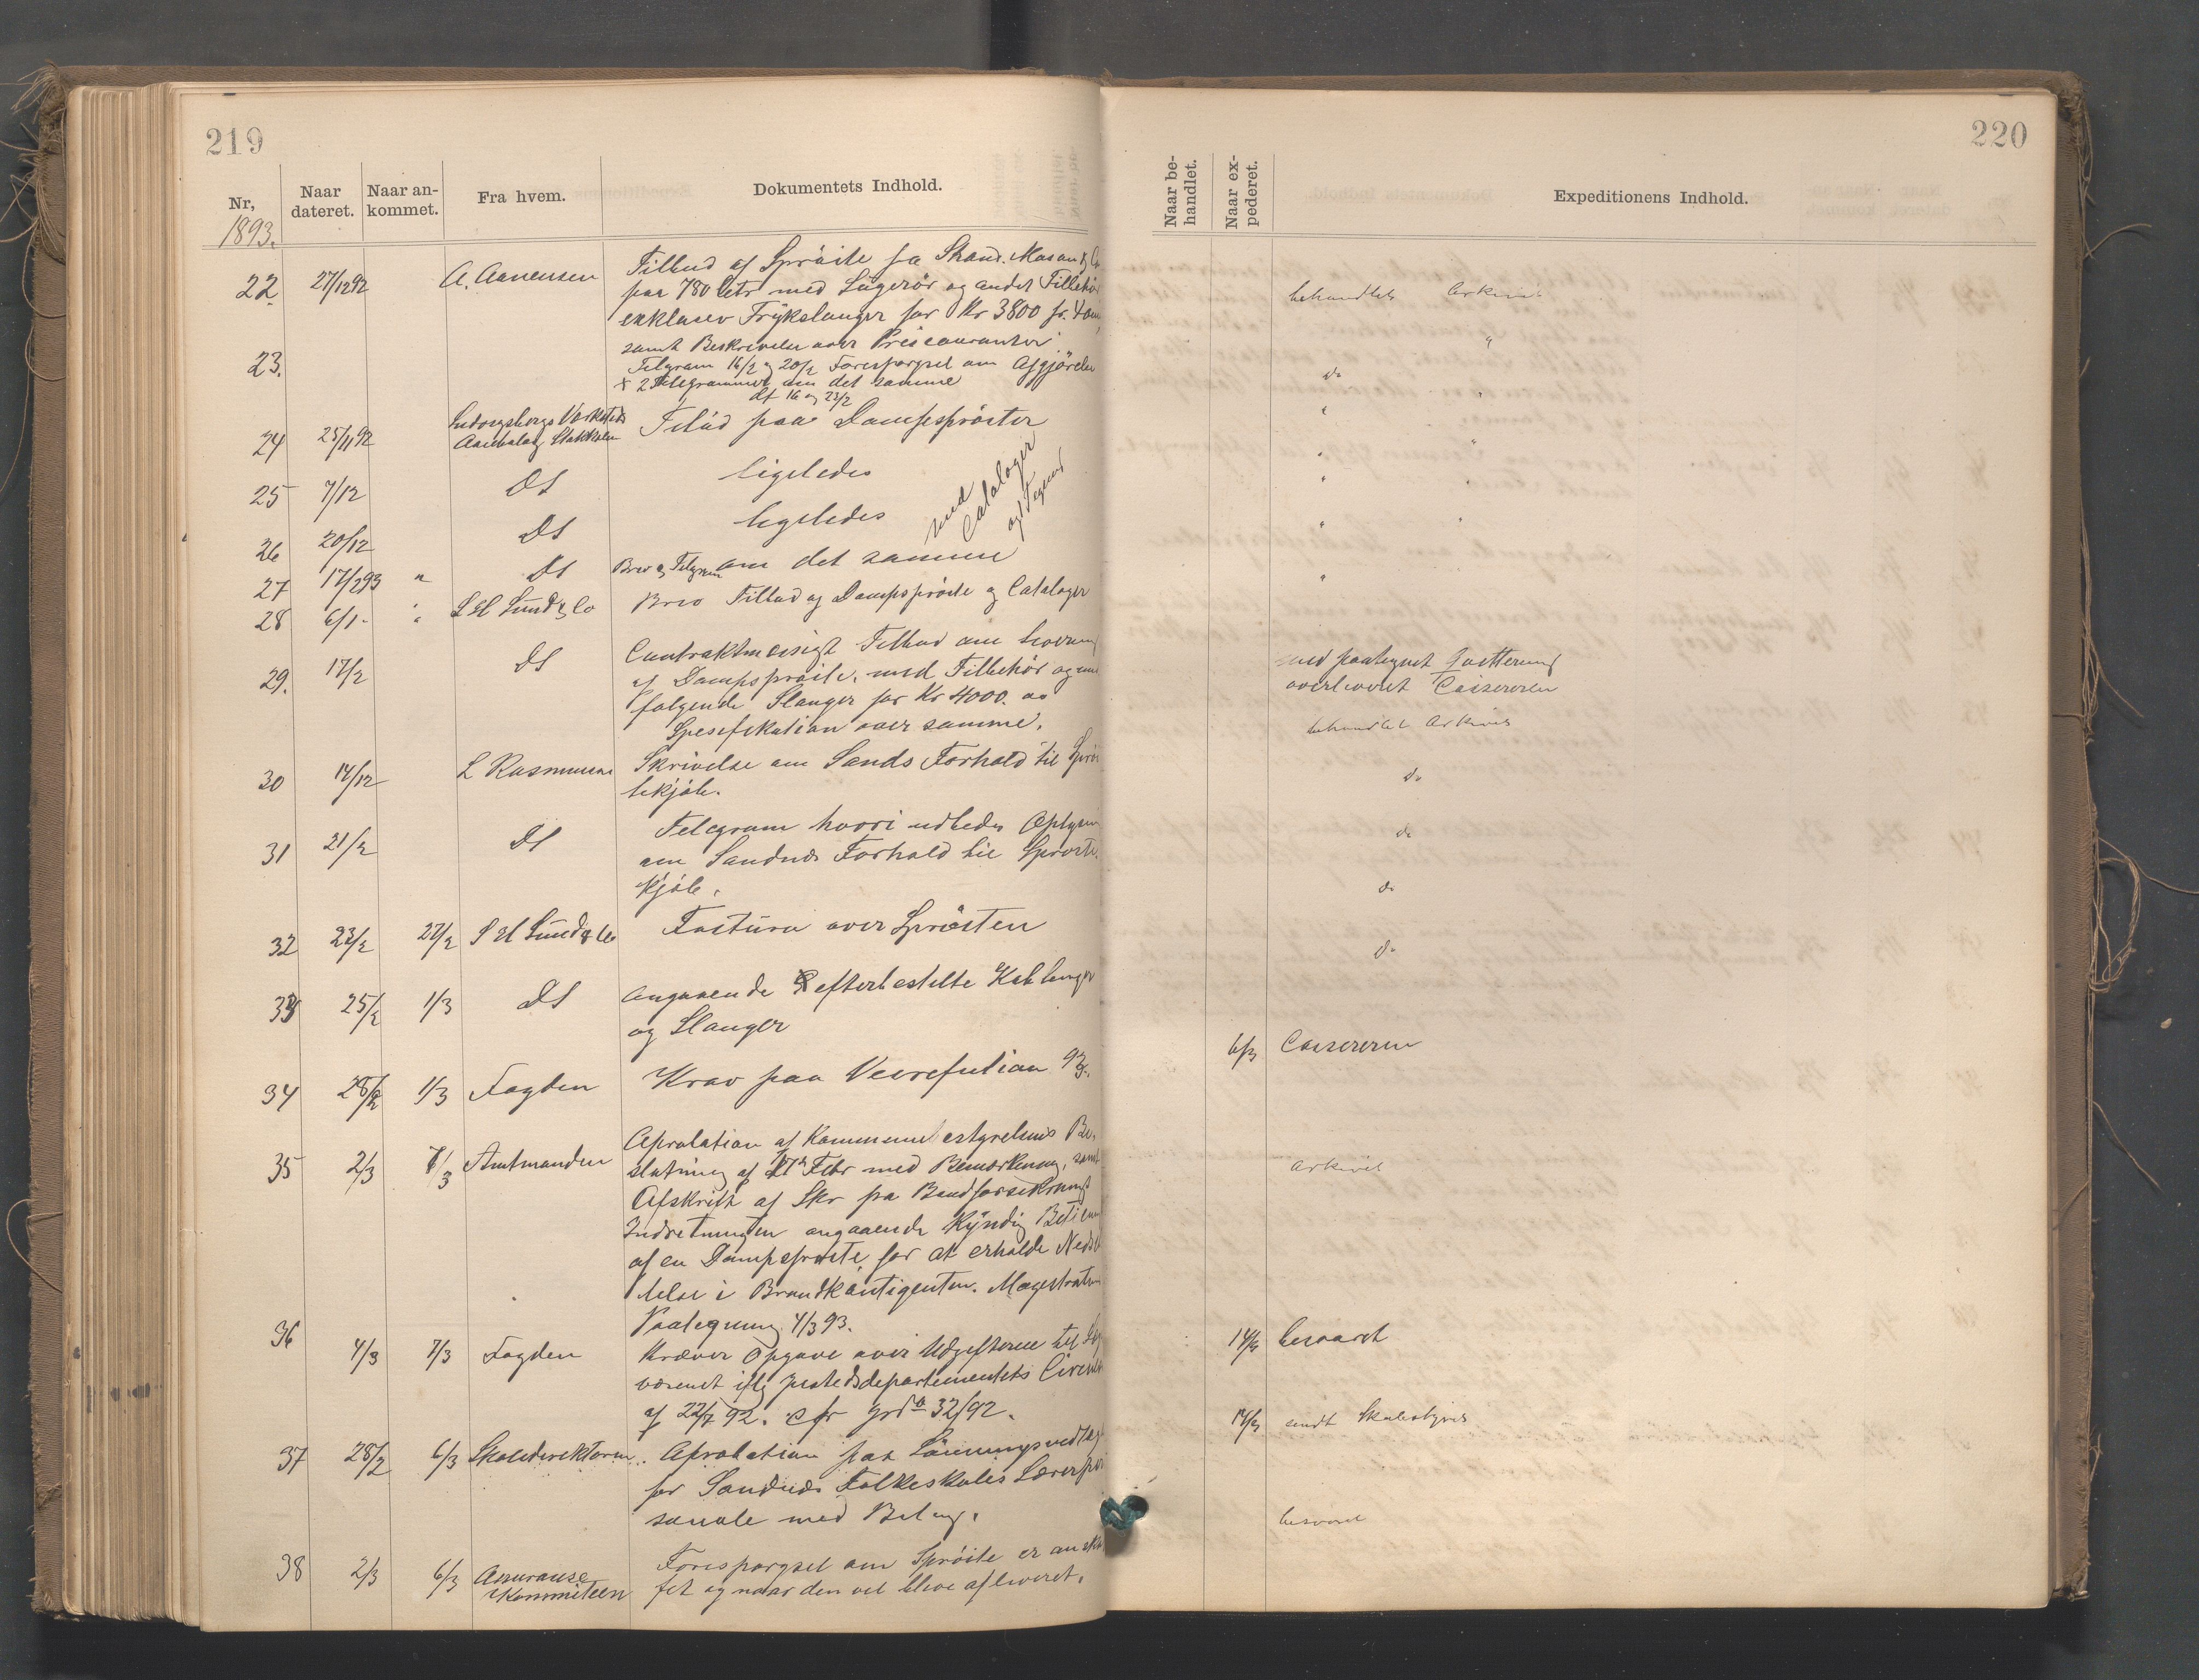 219
Nr,
Naar dateret.
Naar ankommet.
Fra hvem.
Dokumentets Indhold.
1893.
22 27/12 92 A. Aanensen Tilbud af Sprøite fra Skand. Masan & Co
paa 780 Letr med Sugerør og andet Tillehør
exklusiv Trykslanger for Kr 3800 fr.
samt Beskrivelse over Priscouranter
23. Telgram 16/2 og 20/2 Forespørgsel om Afgjørelse
+ 2 Telegrammer om det samme
df 16 og 23/2
24 25/11 92 Ludvigsbergs Verksteds Tilbud paa Dampsprøiter
25 7/12 DS ligeledes
26 20/12 DS ligeledes
med Cataloger og Tegning
27 17/2 93 " DS Brev og Telgram om det samme
28 6/1 - " S H Lund & Co Brev Tilbud og Dampsprøite og Cataloger
29. 17/2 DS Contraktmæssigt Tilbud om Levering
af Dampsprøite, med Tilbehør og
følgende Slanger for Kr 4000. 00
Spesifikation over samme.
30 14/12 L Rasmussen Skrivelse om Sands Forhold til Sprøi
tekjøb.
31 21/2 DS Telegram hvori udbedes Oplysning
om Sandnæs Forhold til Sprøite
kjøb.
32 23/2 27/2 S H Lund & Co Factura over Sprøiten
33 25/2 1/3 DS Angaaende efterbestelte Koblinger
og Slanger
34 28/2 1/3 Fogden Krav paa 93.
35 2/3 7/3 Amtmanden Aprobation af Kommunebestyrelsens Be-
slutning af 17de Febr med Bemærkning, samt
Afskrift af Skr fra Brandforsikrings
Indretningen angaaende Kyndig Betjening
af en Dampsprøite for at erholde Nedsæ
telse i Brandkontigenten. Magistratens
Paategning 4/3 93.
36 4/3 7/3 Fogden Kræver Opgave over Udgifterne til
væsenet ifl Justedsdepartementets Circulær
af 22/7 92. cfr 32/92.
37 28/2 6/3 Skoledirektøren Aprobation paa Lønningsvedtægt
for Sandnæs Folkeskoles Lærerper
sonale med Bilag.
38 2/3 6/3 Assurance Kommiteen Forespørgsel om Sprøite er anskaf
fet og naar den vil blive afleveret.
220
Naar behandlet.
Naar expederet.
Expeditionens Indhold.
behandlet Arkivet
" 
do
" "
" "
" "
" "
"
med paategnet Qvittering
overleveret Cassereren
behandlet Arkivet
do
do
do
do
6/3 Cassereren
Arkivet
14/3 besvaret
14/3 sendt Skolestyret
besvaret